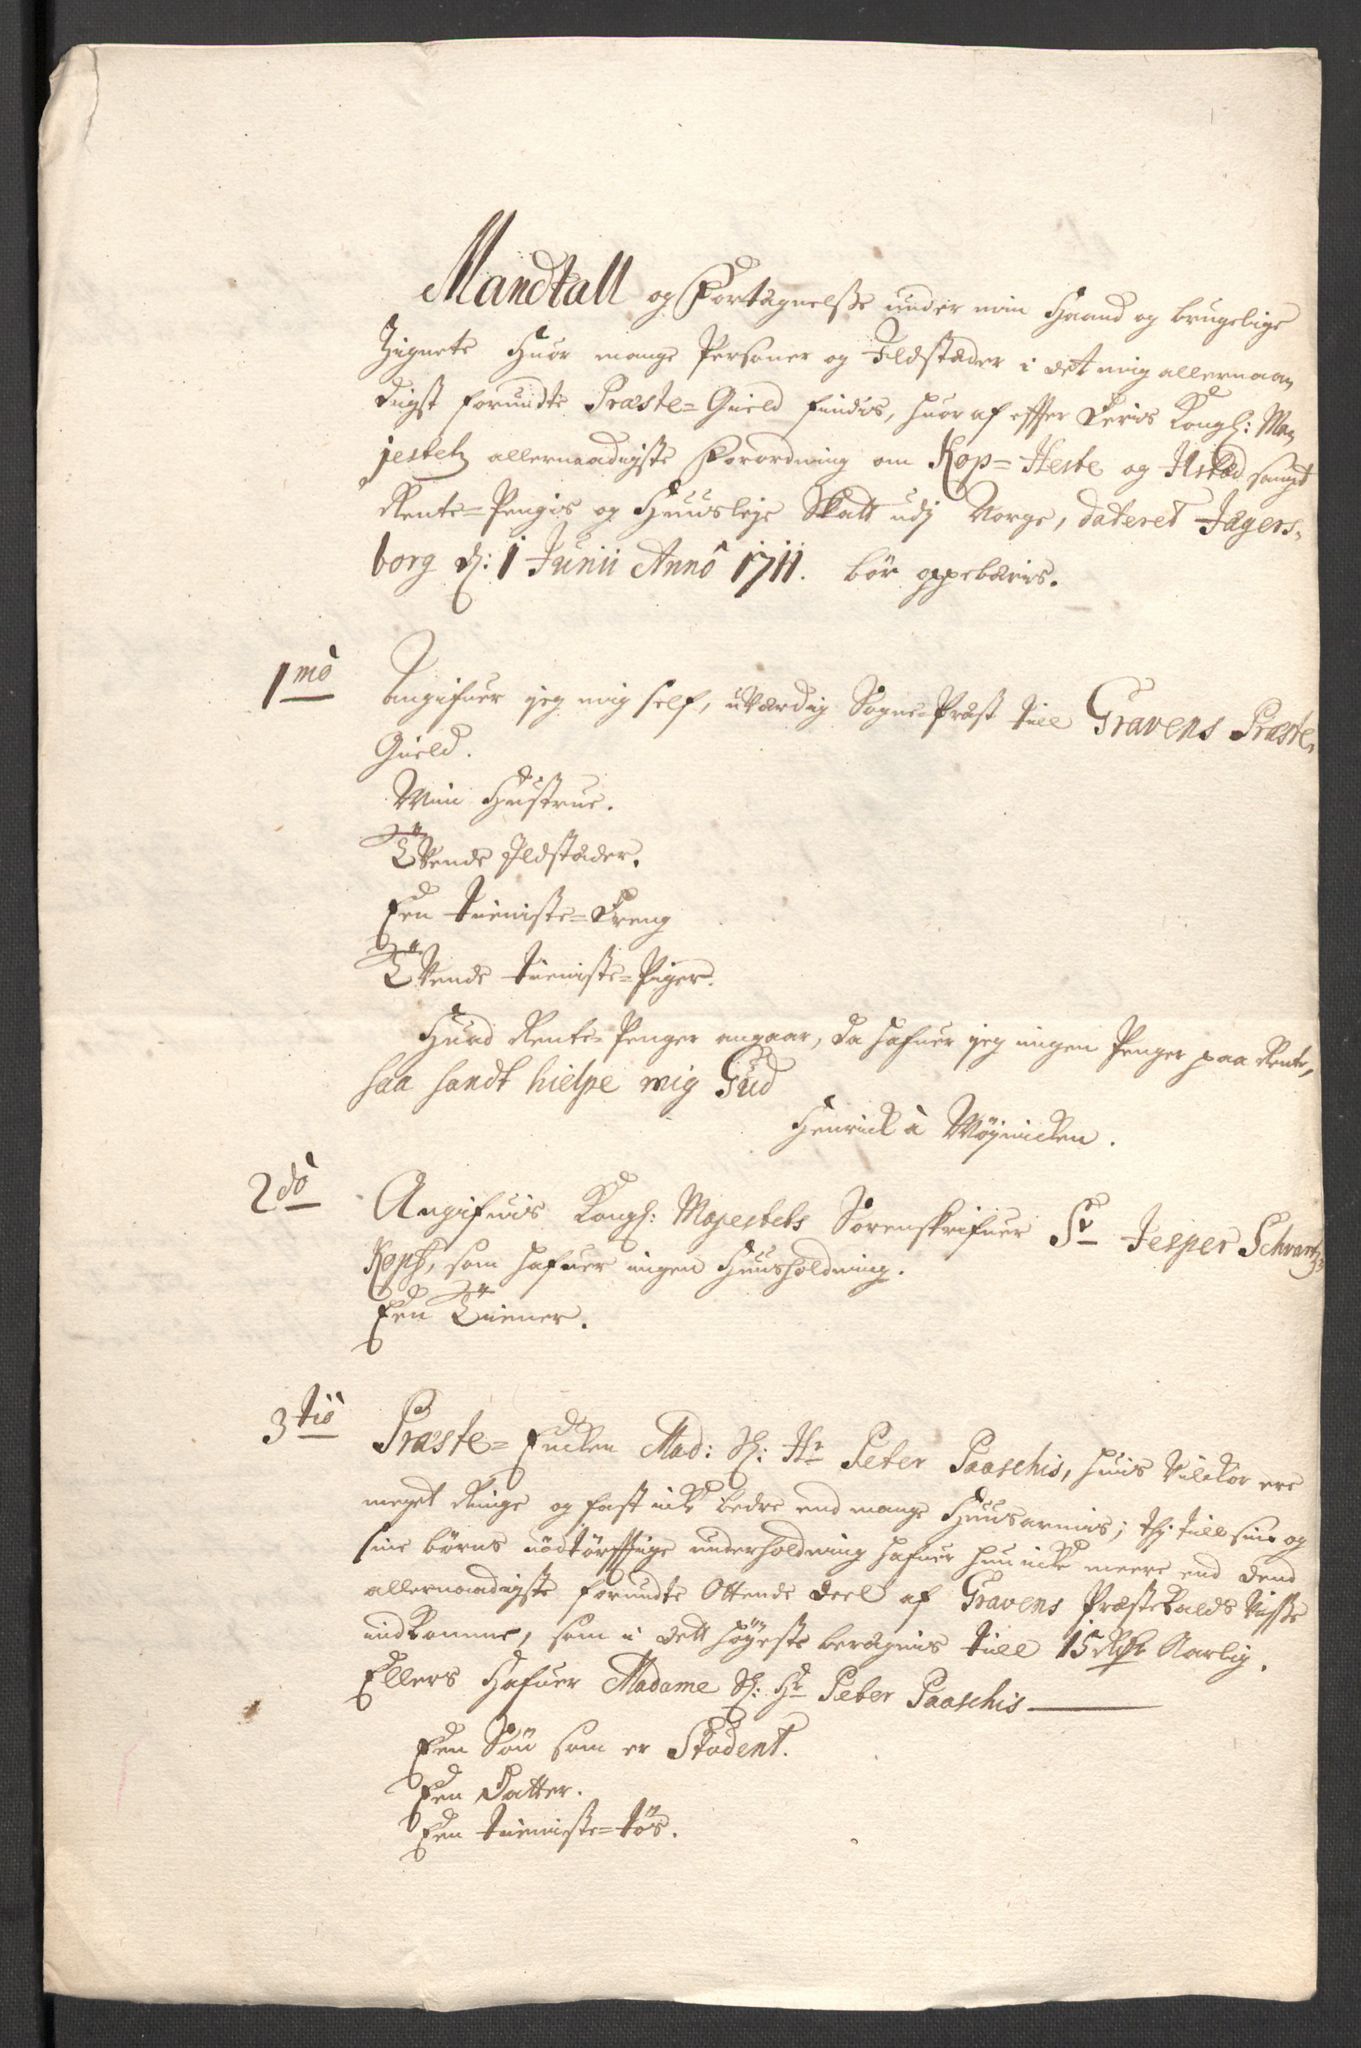 Mandtall og Fortegnelsse under min Haand og brugelige
Zignete Huor mange Personer og Ildstæder i det mig allernaa,
digst forundte Præste-Gield findis, huor af effter Deris Kongl: Ma,
jestetz allernaadigste Forordning om Kop-Heste og Ilsted sampt
Rente-Pengis og Huusleje Skatt udj Norge, dateret Jægers-
borg d: 1 Junii Anno 1711. bør oppebæris.
1mo Angifuer jeg mig self, uværdig Sogne-Præst till Gravens Præste-
Gield.
Min Hustrue.
Tvende Ildstæder.
Een tieniste-Dreng
Tvende tieniste-Piger.
Huad Rente-Penger angaar, da hafuer jeg ingen Penger paa Rente,
saa sandt hielpe mig Gud
Henrick à Møjnicken.
2do Angifuis Kongl: Majestets Sorenskrifuer Sr Jesper Schvartz,
Koph, som hafuer ingen Huusholdning.
Een Tiener.
3tio Præste-Encken Mad: Sl: Hr Peter Paaschis, huis vilckor ere
meget Ringe og fast icke bedre end mange Huusarmis; thj till sin og
sine børns nødtørfftige underholdning hafuer hun icke meere end dend
allernaadigste forundte Ottende deel af Gravens Præstekalds Visse
indkomme, som i dett høyeste beregnis till 15 Rdr Aarlig.
Ellers Hafuer Madame Sl: Hr Peter Paaschis
Een Søn som er Student.
Een Datter.
Een tieniste-tøs.